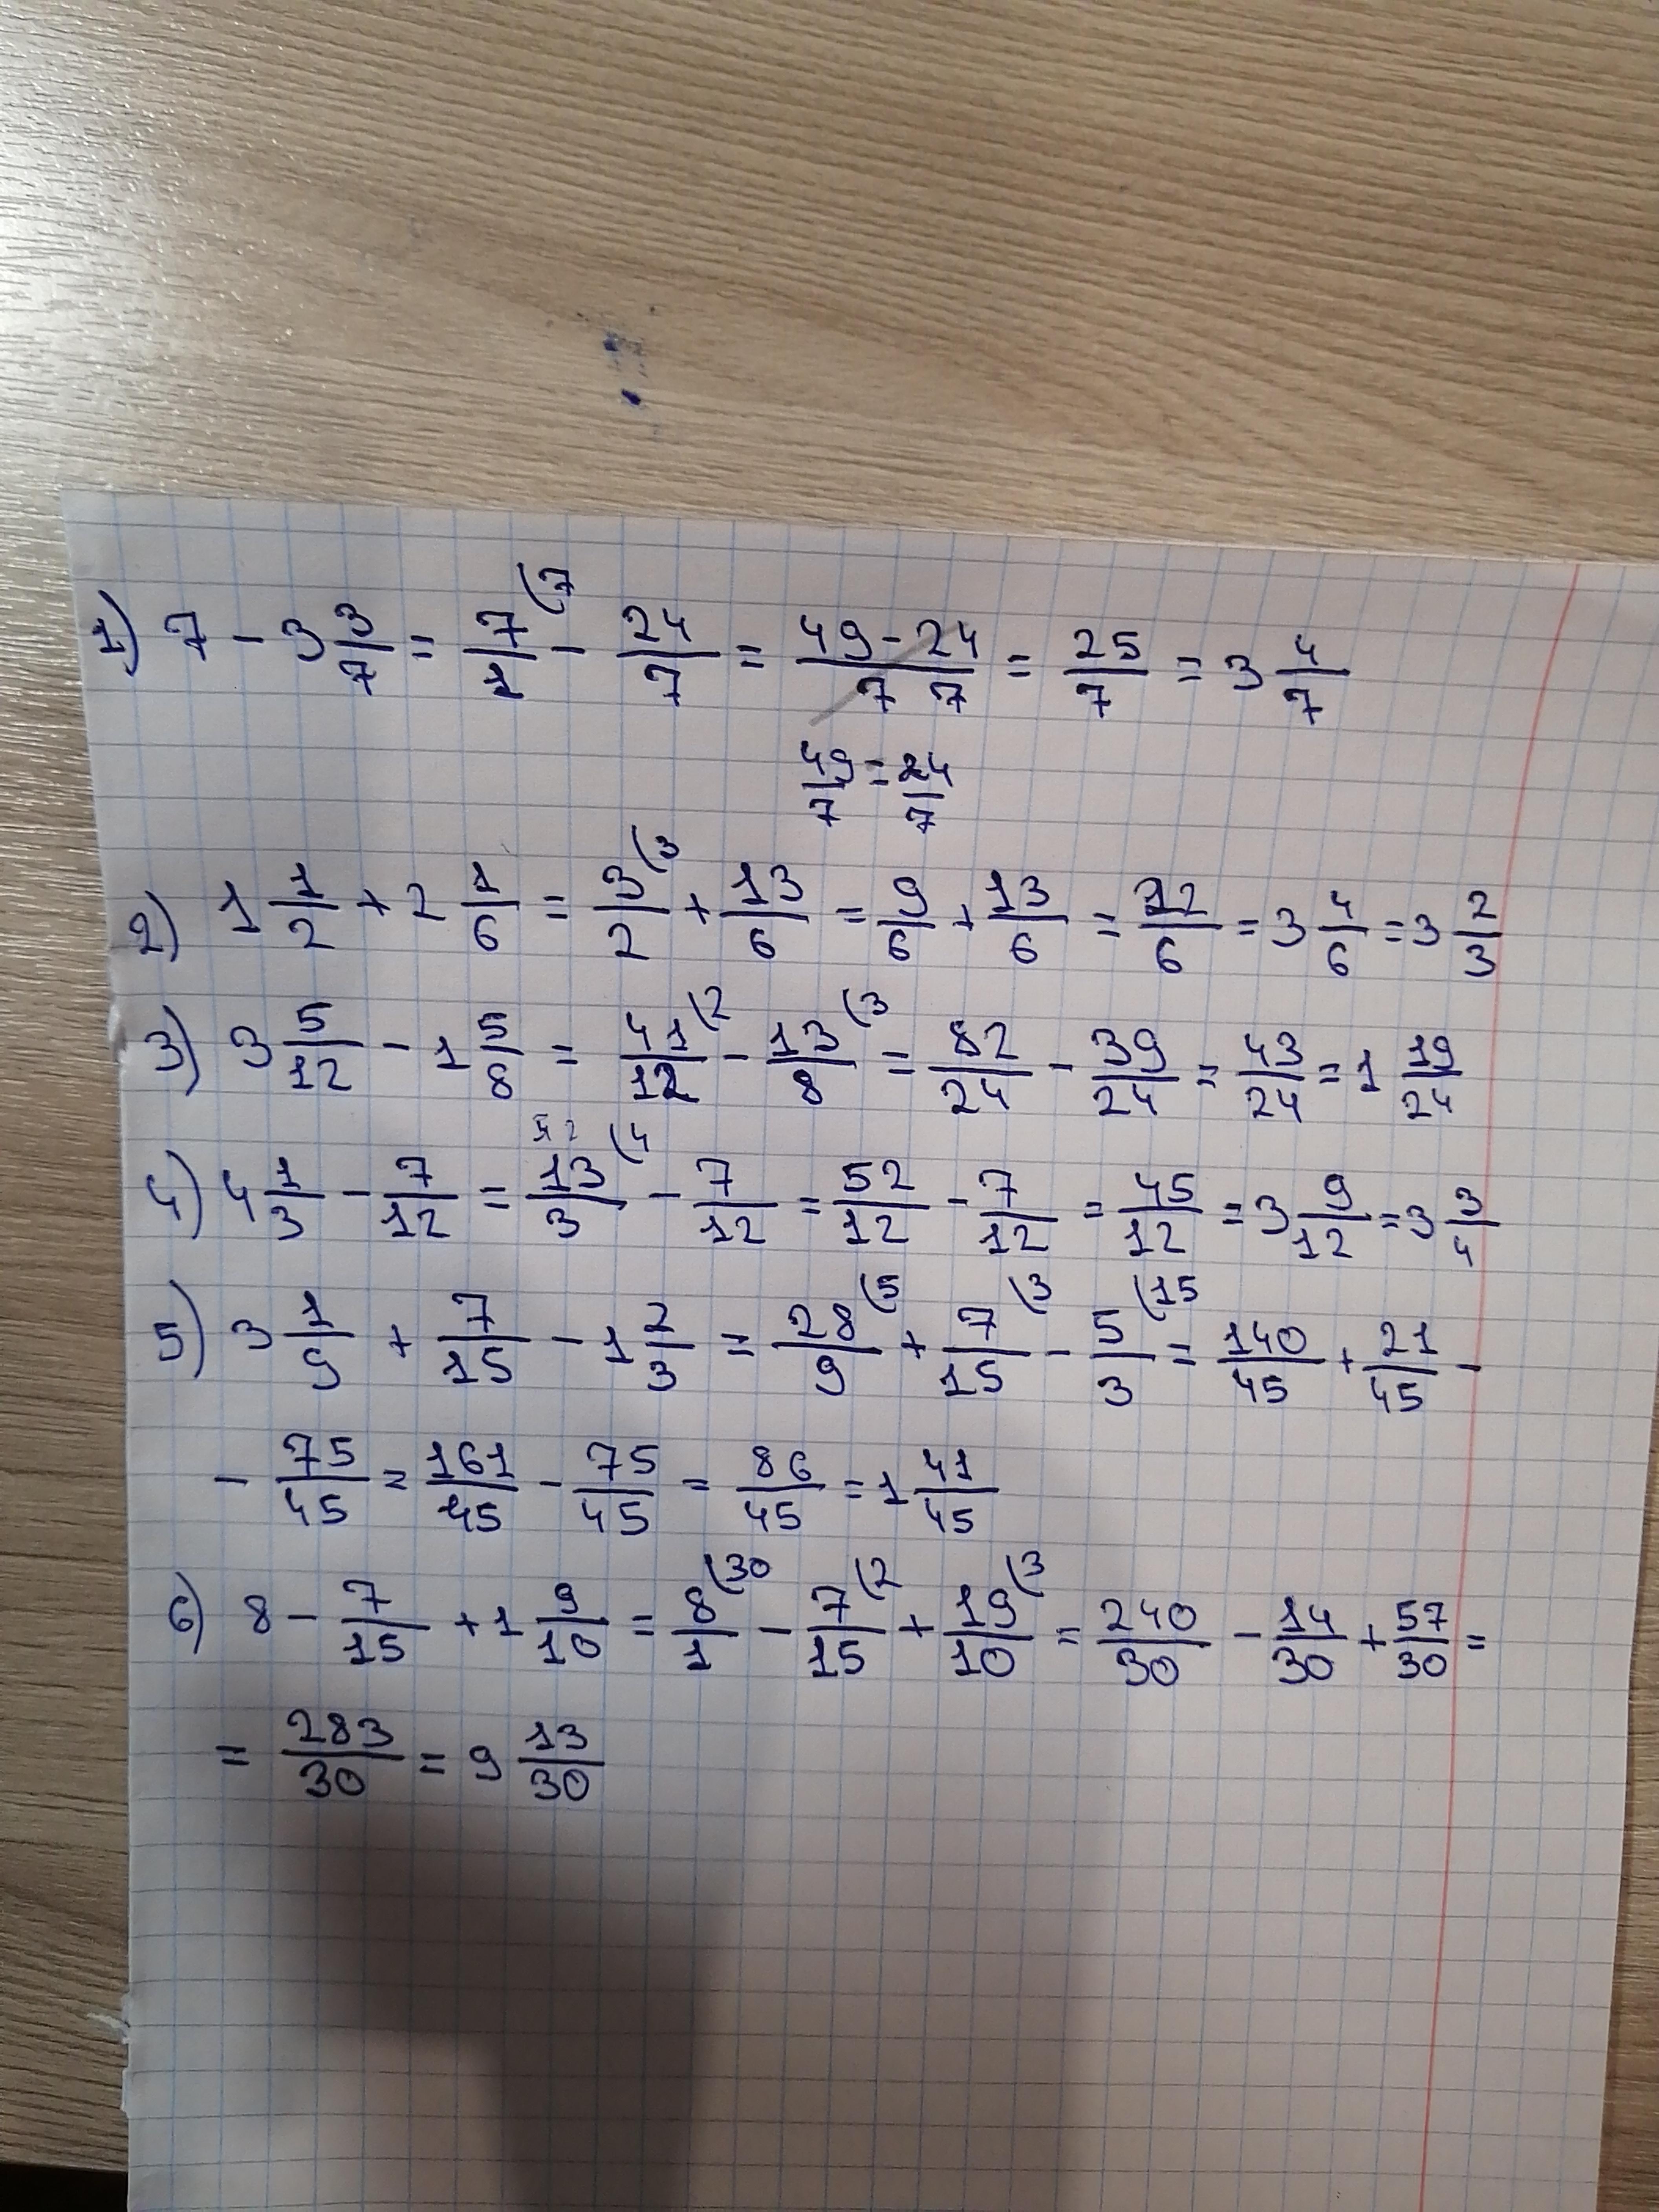 1) 7 - 3 3/7 = 7/1 (7 - 24/7 = 49-24/7 7 = 25/7 = 3 4/7
49/7 = 24/7
2) 1 1/2 + 2 1/6 = 3/2 (3 + 13/6 = 9/6 + 13/6 = 22/6 = 3 4/6 = 3 2/3
3) 3 5/12 - 1 5/8 = 41/12 (2 - 13/8 (3 = 82/24 - 39/24 = 43/24 = 1 19/24
4) 4 1/3 - 7/12 = 13/3 (4 - 7/12 = 52/12 - 7/12 = 45/12 = 3 9/12 = 3 3/4
5) 3 1/9 + 7/15 - 1 2/3 = 28/9 (5 + 7/15 (3 - 5/3 (15 = 140/45 + 21/45 -
- 75/45 = 161/45 - 75/45 = 86/45 = 1 41/45
6) 8 - 7/15 + 1 9/10 = 8/1 (30 - 7/15 (2 + 19/10 (3 = 240/30 - 14/30 + 57/30 =
= 283/30 = 9 13/30